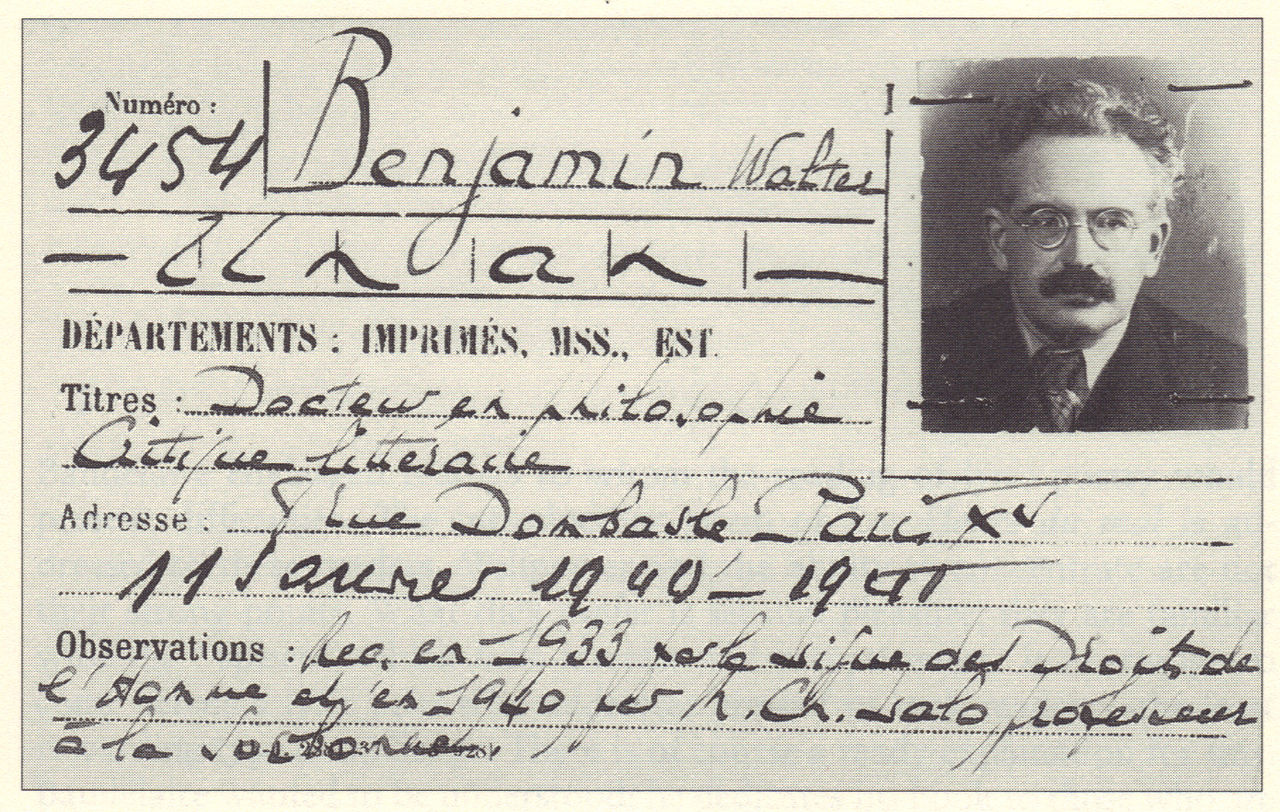 Numéro :
3454 Benjamin Walter
un an
DÉPARTEMENTS : IMPRIMÉS, MSS., EST.
Titres : Docteur en philosophie
Critique littéraire
Adresse : rue Dombasle Paris XV
11 Janvier 1940 - 1941
Observations : Rec. en 1933 par la Ligue des Droits de
l'Homme et en 1940 par M. Ch. Lalo professeur
à la Sorbonne